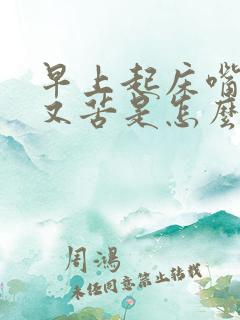 早上起床嘴
又苦是怎么
周鸿
未经同意禁止转载